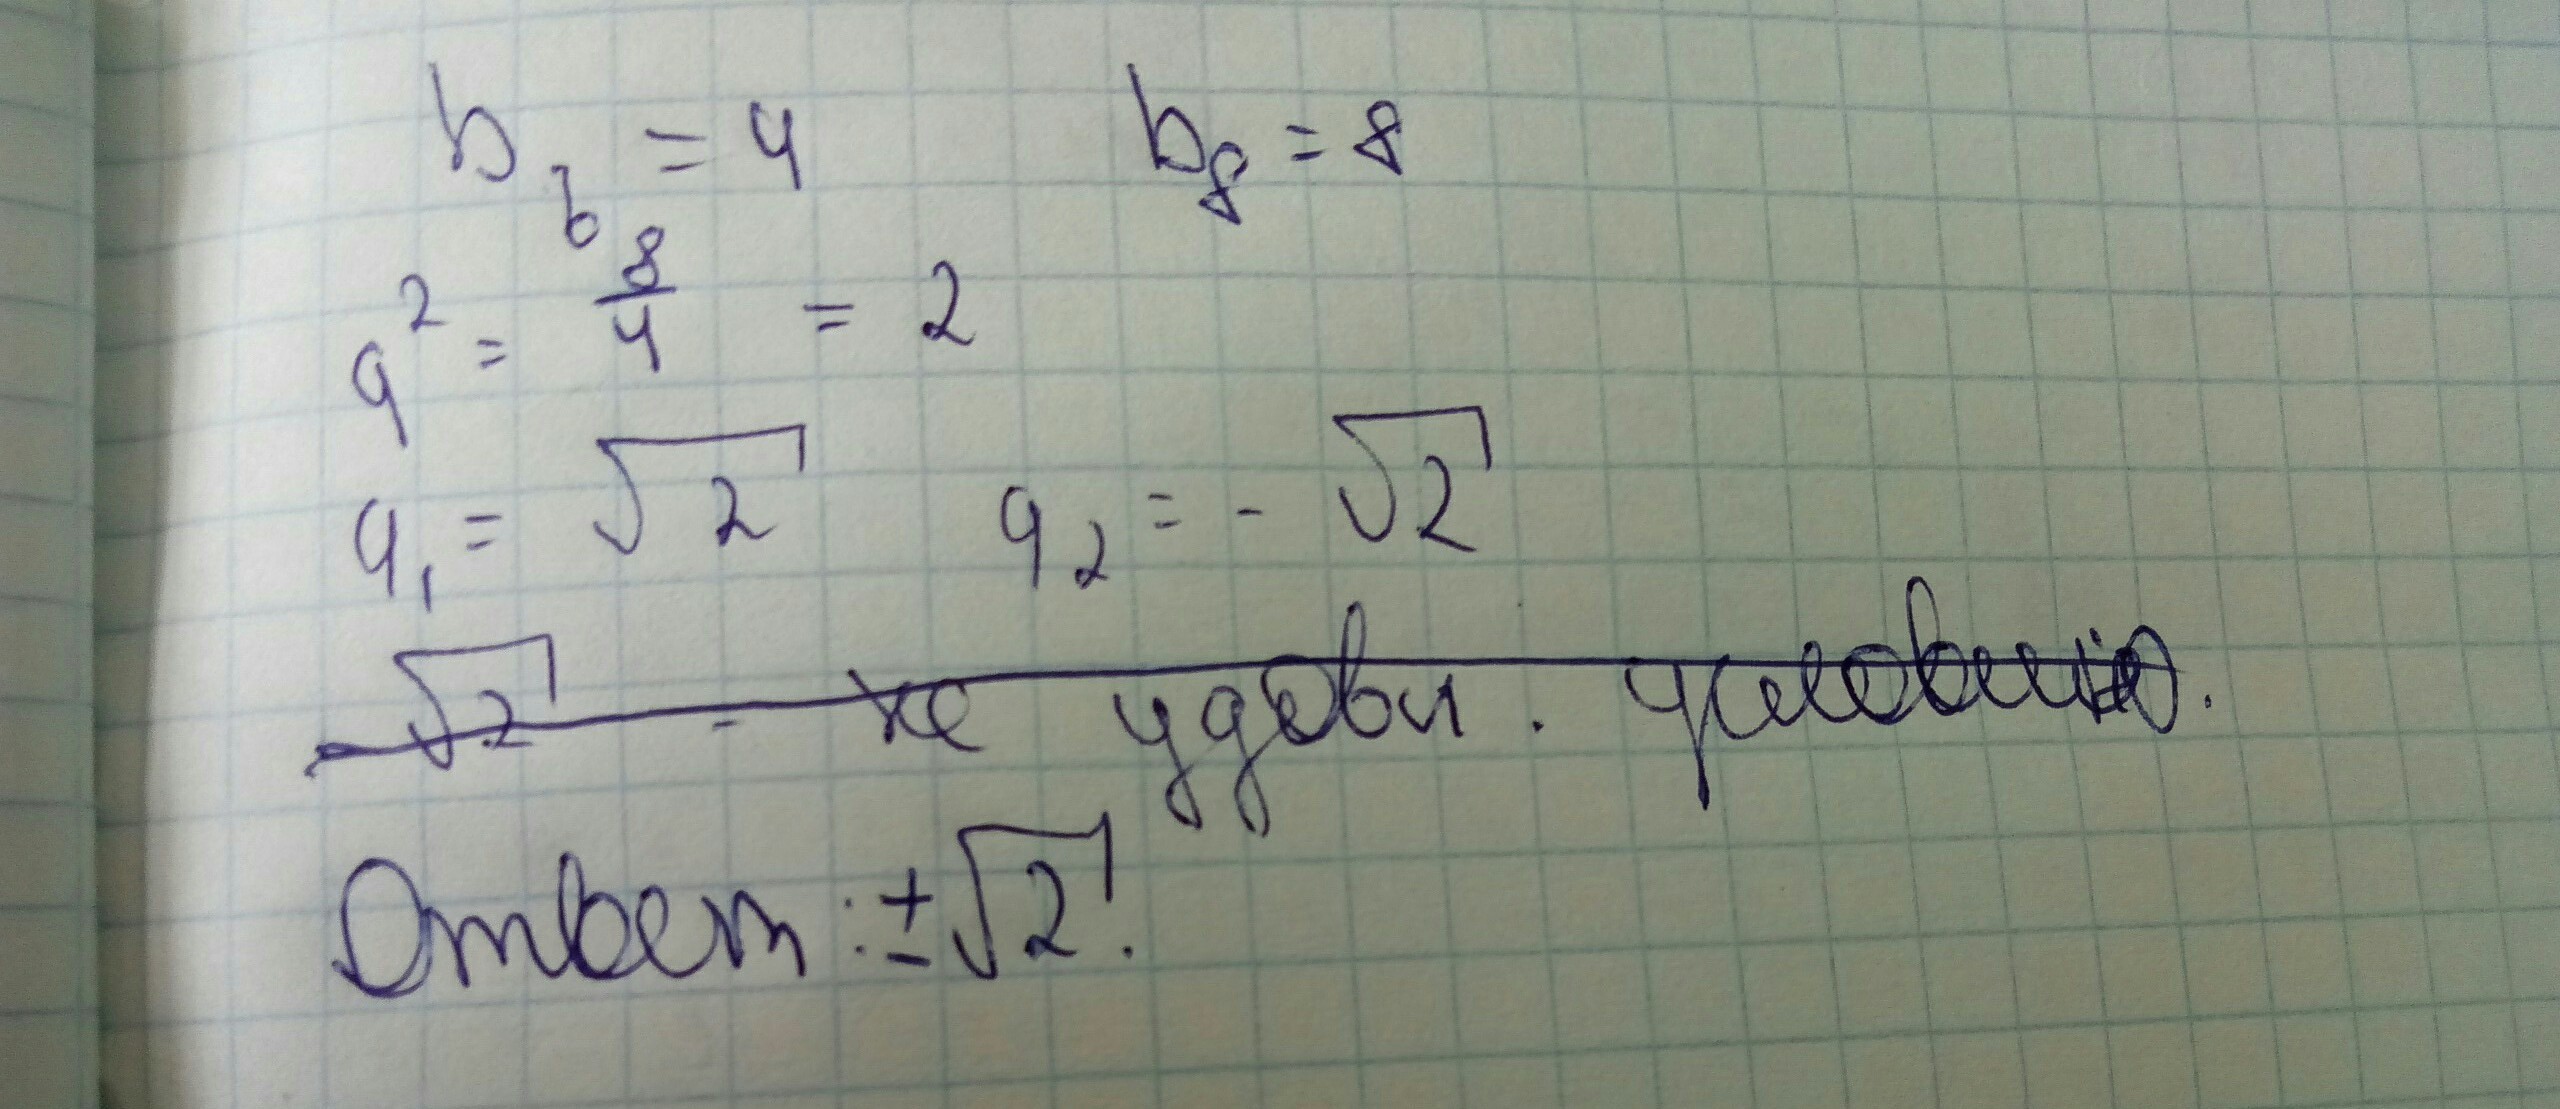 b₆ = 4 b₈ = 8
q² = 8/4 = 2
q₁ = √2 q₂ = - √2
-√2 - не удовл. условию.
Ответ: ±√2.